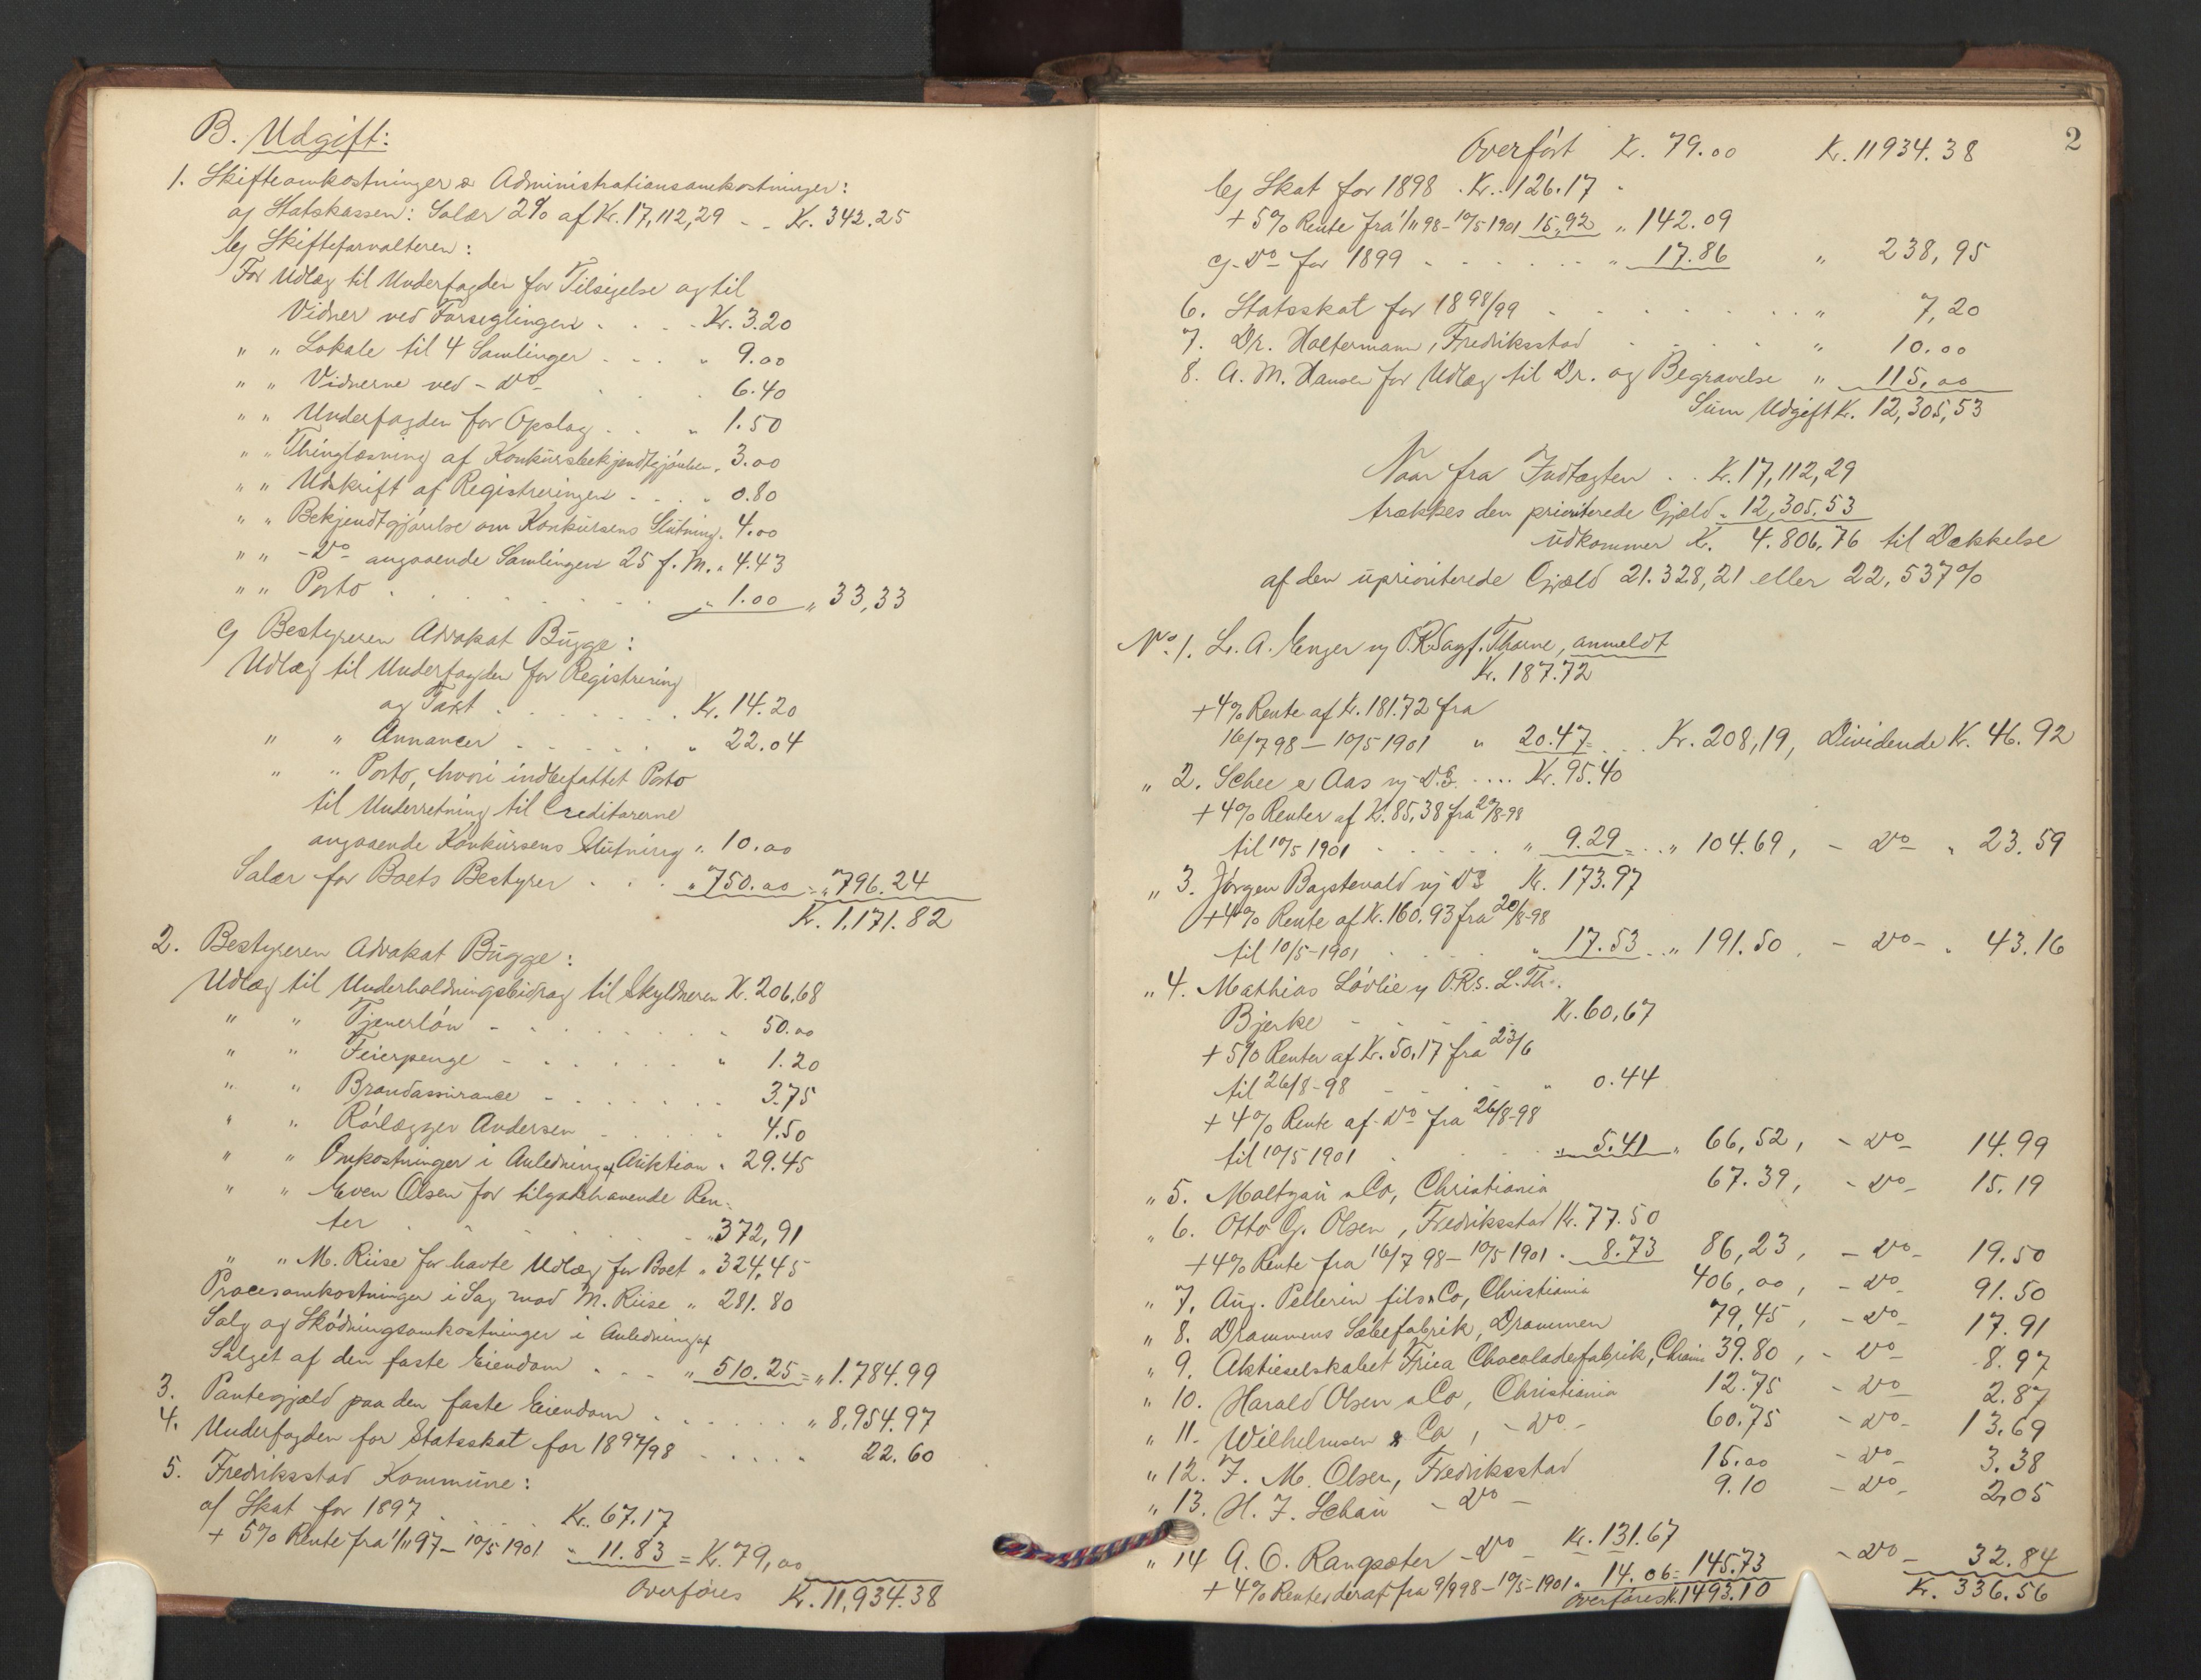 B. Udgift:
1. Skifteomkostninger & Administrationsomkostninger:
a) Statskassen: Salær 2% af Kr. 17,112,29 - - Kr. 342.25
b) Skifteforvalteren:
For Udlæg til Underfogden for Tilsigelse og til
Vidner ved Forseglingen . . . . Kr. 3.20
" " Lokale til 4 Samlinger . . . " 9.00
" " Vidnerne ved - do - . . . 6.40
" " Underfogden for Opslag . . " 1.50
" " Thinglæsning af Konkursbekjendtgjörelsen " 3.00
" " Udskrift af Registreringen . . . . " 0.80
" " Bekjendtgjörelse om Konkursens Slutning " 4.00
" " - do - angaaende Samlingen 25 f. M. " 4.43
" " Porto . . . . . . . " 1.00 " 33,33
c) Bestyreren Advokat Bugge:
Udlæg til Underfogden for Registrering
og Taxt . . . . . . . Kr. 14.20
" " Annoncer . . . . . " 22.04
" " Porto, hvori indbefattet Porto
til Underretning til Creditorerne
angaaende Konkursens Slutning " 10.00
Salær for Boets Bestyrer . . . " 750.00 = " 796.24
Kr. 1,171.82
2. Bestyreren Advokat Bugge:
Udlæg til Underholdningsbidrag til Skyldneren Kr. 206.68
" " Tjenerlön - . . . . . . " 50.00
" " Feierpenge - . . . . . " 1.20
" " Brandassurance - . . . . . 3.75
" " Rörlægger Andersen . . . . " 4.50
" " Omkostninger i Anledning af Auktion " 29.45
" " Even Olsen for tilgodehavende Ren-
ter . . . . . . . " 372,91
" " M. Riise for havte Udlæg for Boet " 324,45
Procesomkostninger i Sag mod M. Riise " 281.80
Salg og Sködningsomkostninger i Anledning af
Salget af den faste Eiendom . . . " 510.25 = " 1.784.99
3. Pantegjæld paa den faste Eiendom . . . . . . " 8,954.97
4. Underfogden for Statsskat for 1897/98 - . . . . 22.60
5. Fredriksstad Kommune:
a) Skat for 1897 . . . . Kr. 67.17
+ 5% Rente fra 1/11 97 - 10/5 1901 " 11.83 = Kr. 79,00
Overföres Kr. 11,934.38
2
Overfört Kr. 79.00 Kr. 11934.38
b) Skat for 1898 . Kr. 126.17
+ 5% Rente fra 1/11 98 - 10/5 1901 15,92 " 142.09
c) - do - for 1899 - . . . . . " 17.86 " 238,95
6. Statsskat for 1898/99 . . . . . . . . " 7,20
7. Dr. Holtermann, Fredriksstad . . . . . " 10.00
8. A. M. Hansen for Udlæg til Dr. og Begravelse " 115,00
Sum Udgift Kr. 12,305,53
Naar fra Indtægten . . Kr. 17,112,29
trækkes den prioriterede Gjæld " 12,305,53
udkommer Kr. 4.806,76 til Dækkelse
af den uprioriterede Gjæld 21.328,21 eller 22,537%
No. 1. L. A. Enger v/ O.R.Sagf. Thorne, anmeldt
Kr. 187.72
+ 4% Rente af Kr. 181.72 fra
16/7 98 - 10/5 1901 " 20.47 = . . Kr. 208,19, Dividende Kr. 46.92
" 2. Schee & Aas v/ do .... Kr. 95.40
+ 4% Renter af Kr. 85,38 fra 20/8-98
til 10/5 1901 . . . . . " 9.29 = .. " 104.69, - do - " 23.59
" 3. Jörgen Bagstevold v/ do Kr. 173.97
+ 4% Rente af Kr. 160.93 fra 20/8-98
til 10/5-1901 . . . . " 17.53 .. " 191.50 . - do - " 43.16
" 4. Mathias Lövlie v/ O.R.S. L. Th.
Bjerke - . . . . Kr. 60,67
+ 5% Renter af Kr. 50.17 fra 23/6
til 26/8-98 - - . . " 0.44
+ 4% Rente af - do - fra 26/8-98
til 10/5 1901 . . . . " 5.41 " 66,52, - do - 14.99
" 5. Maltzau & Co, Christiania 67.39, - do - 15.19
" 6. Otto G. Olsen, Fredriksstad Kr. 77.50
+ 4% Rente fra 16/7 98 - 10/5 1901 . 8.73 86,23, - do - 19.50
" 7. Aug. Pellerin fils & Co, Christiania 406,00, - do - 91.50
" 8. Drammens Sæbefabrik, Drammen 79,45, - do - 17.91
" 9. Aktieselskabet Fria Chocoladefabrik, Chrania 39.80, - do - 8.97
" 10. Harald Olsen & Co, Christiania 12.75 - do - 2.87
" 11. Wilhelmsen & Co, - do - 60.75 - do - 13,69
" 12. F. M. Olsen, Fredriksstad 15.00 - do - 3.38
" 13. H. F. Schau - do - 9.10 - do - 2,05
" 14 A. O. Rangsæter - do - Kr. 131.67
+ 4% Renter deraf fra 9/9 98 - 10/5-1901 " 14.06 = 145.73 - do - 32.84
Overföres Kr. 1493.10 Kr. 336.56